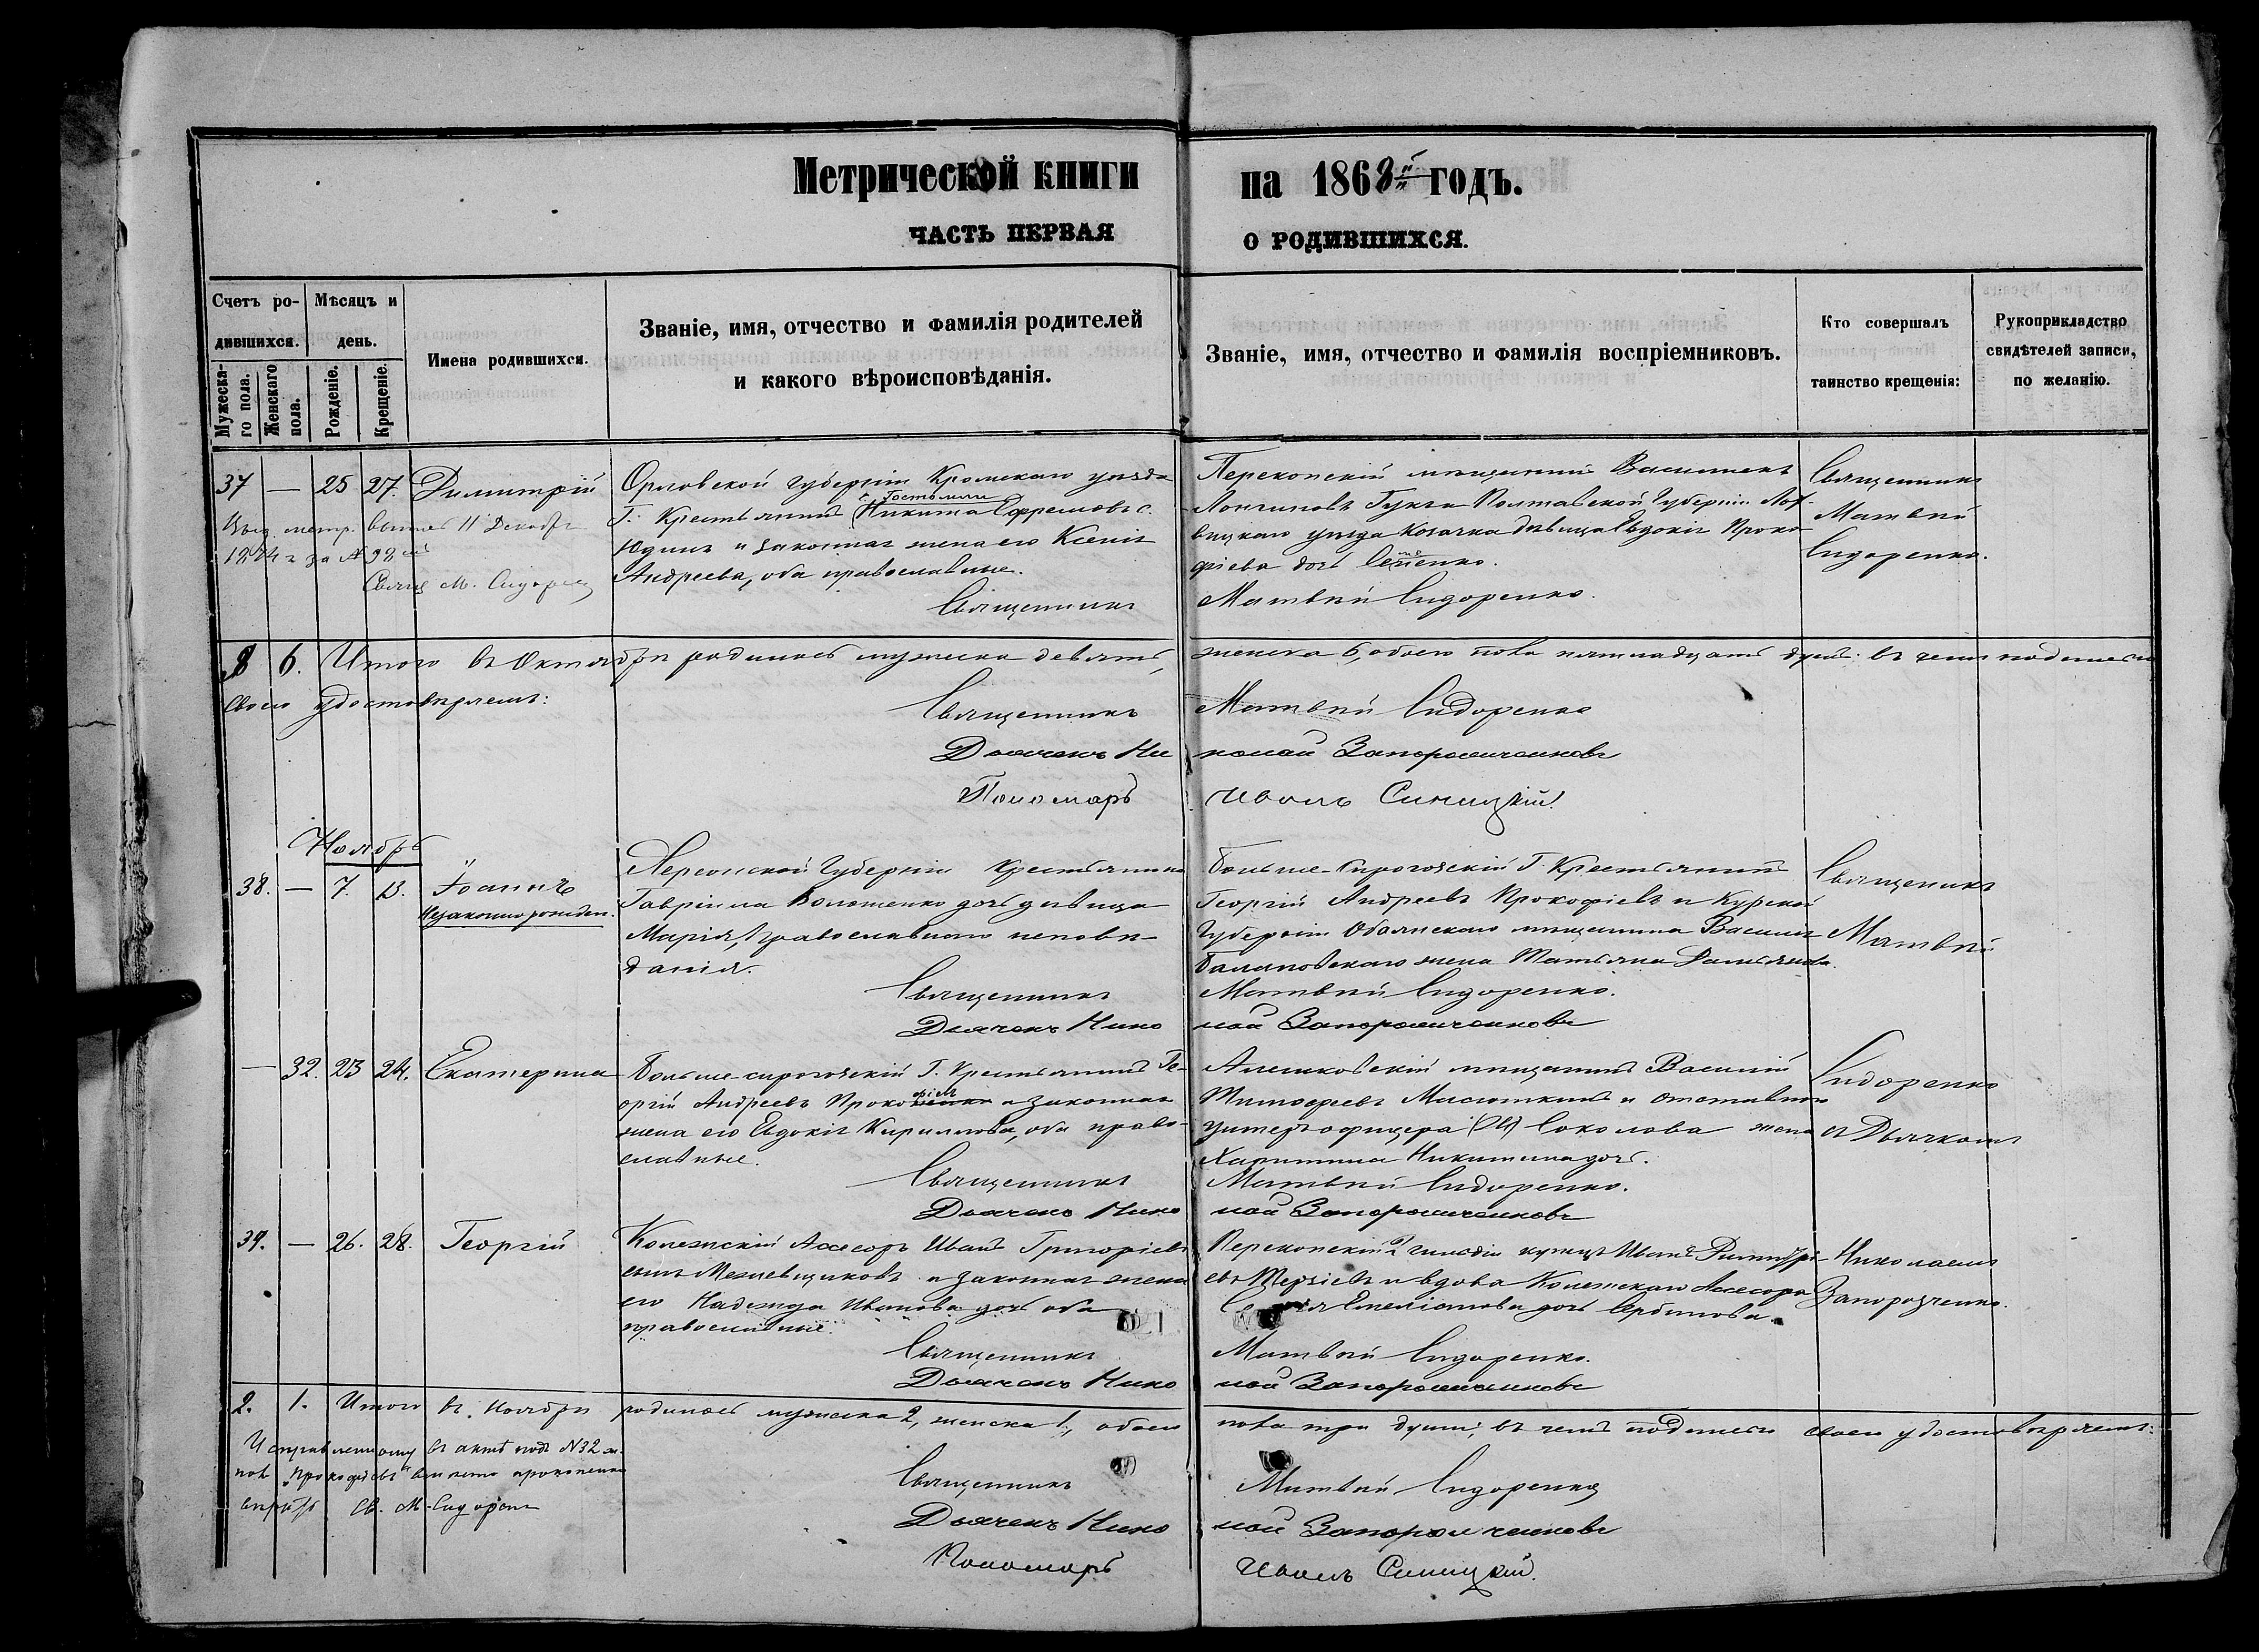 Метрической книги на 1868й годъ.
ЧАСТЬ ПЕРВАЯ О РОДИВШИХСЯ.
Счетъ родившихся.
Мужескаго пола.
Женскаго пола.
Мѣсяцъ и день.
Рожденіе.
Крещеніе.
Имена родившихся.
Званіе, имя, отчество и фамилія родителей
и какого вѣроисповѣданія.
Званіе, имя, отчество и фамилія воспріемниковъ.
Кто совершалъ
таинство крещенія:
Рукоприкладство
свидѣтелей записи,
по желанію.
37 — 25 27. Димитрій
Выд. метр. 11 Декабр
1874 г за № 92
Свящ М. Сидорен
Орловской губерніи Кромскаго уѣзда
Г. Крестьянинъ Никита Ефремовъ с.
Юдинъ и законная жена его Ксенія
Андреева, оба православные.
Священникъ
Перекопскій мѣщанинъ
Полтавской Губерніи Лох-
вицкаго уѣзда козачка дѣвица Евдокія Проко-
фіева дочь
Матвѣй Сидоренко.
Священникъ
Матвѣй
Сидоренко.
8 6. Итого въ Октябрѣ родилось мужеска девять,
женска 6, обоего пола пятнадцать душъ: въ чемъ подписью
своею удостовѣряемъ:
Священникъ Матвѣй Сидоренко
Дьячекъ Николай
Пономарь Синицкій.
Ноябрь
38. — 7. 13. Іоаннъ
Незаконно рожден.
Херсонской Губерніи крестьянина
Гавріила дочь дѣвица
Марія, православнаго исповѣ-
данія.
Священникъ
Дьячекъ Нико
Больше-Сирогозскій Г. Крестьянинъ
Георгій Андреевъ Прокофіевъ и Курской
Губерніи Обоянскаго мѣщанина Василія
жена Татьяна
Матвѣй Сидоренко.
лай
Священникъ
Матвѣй
— 32. 23 24. Екатерина
Больше-сирогозскій Г. Крестьянинъ Ге-
оргій Андреевъ Прокофіевъ и законная
жена его Евдокія Кириллова, оба право-
славные.
Священникъ
Дьячекъ Нико
Алешковскій мѣщанинъ Василій
Тимофеевъ и отставного
унтеръ офицера Соколова жена
Харитина Никитина дочь.
Матвѣй Сидоренко.
лай
Сидоренко
съ Дьячкомъ
39. — 26. 28. Георгій
Колежскій Ассесоръ Иванъ Григоріевъ
сынъ и законная жена
его Надежда Иванова дочь оба
православные.
Священникъ
Дьячекъ Нико
Перекопскій 2 гильдіи купецъ Иванъ Димитрі-
евъ и вдова Колежскаго Ассесора
Емеліанова дочь
Матвѣй Сидоренко.
лай
Николаемъ
2. 1. Итого въ Ноябрѣ родилось мужеска 2, женска 1, обоего
пола три души; въ чемъ подписью своею удостовѣряемъ:
Исправленному въ актѣ подъ №32
„Прокофіевъ“ вмѣсто прокопенко
Св. М. Сидорен
Священникъ Матвѣй Сидоренко
Дьячекъ Николай
Пономарь Синицкій.